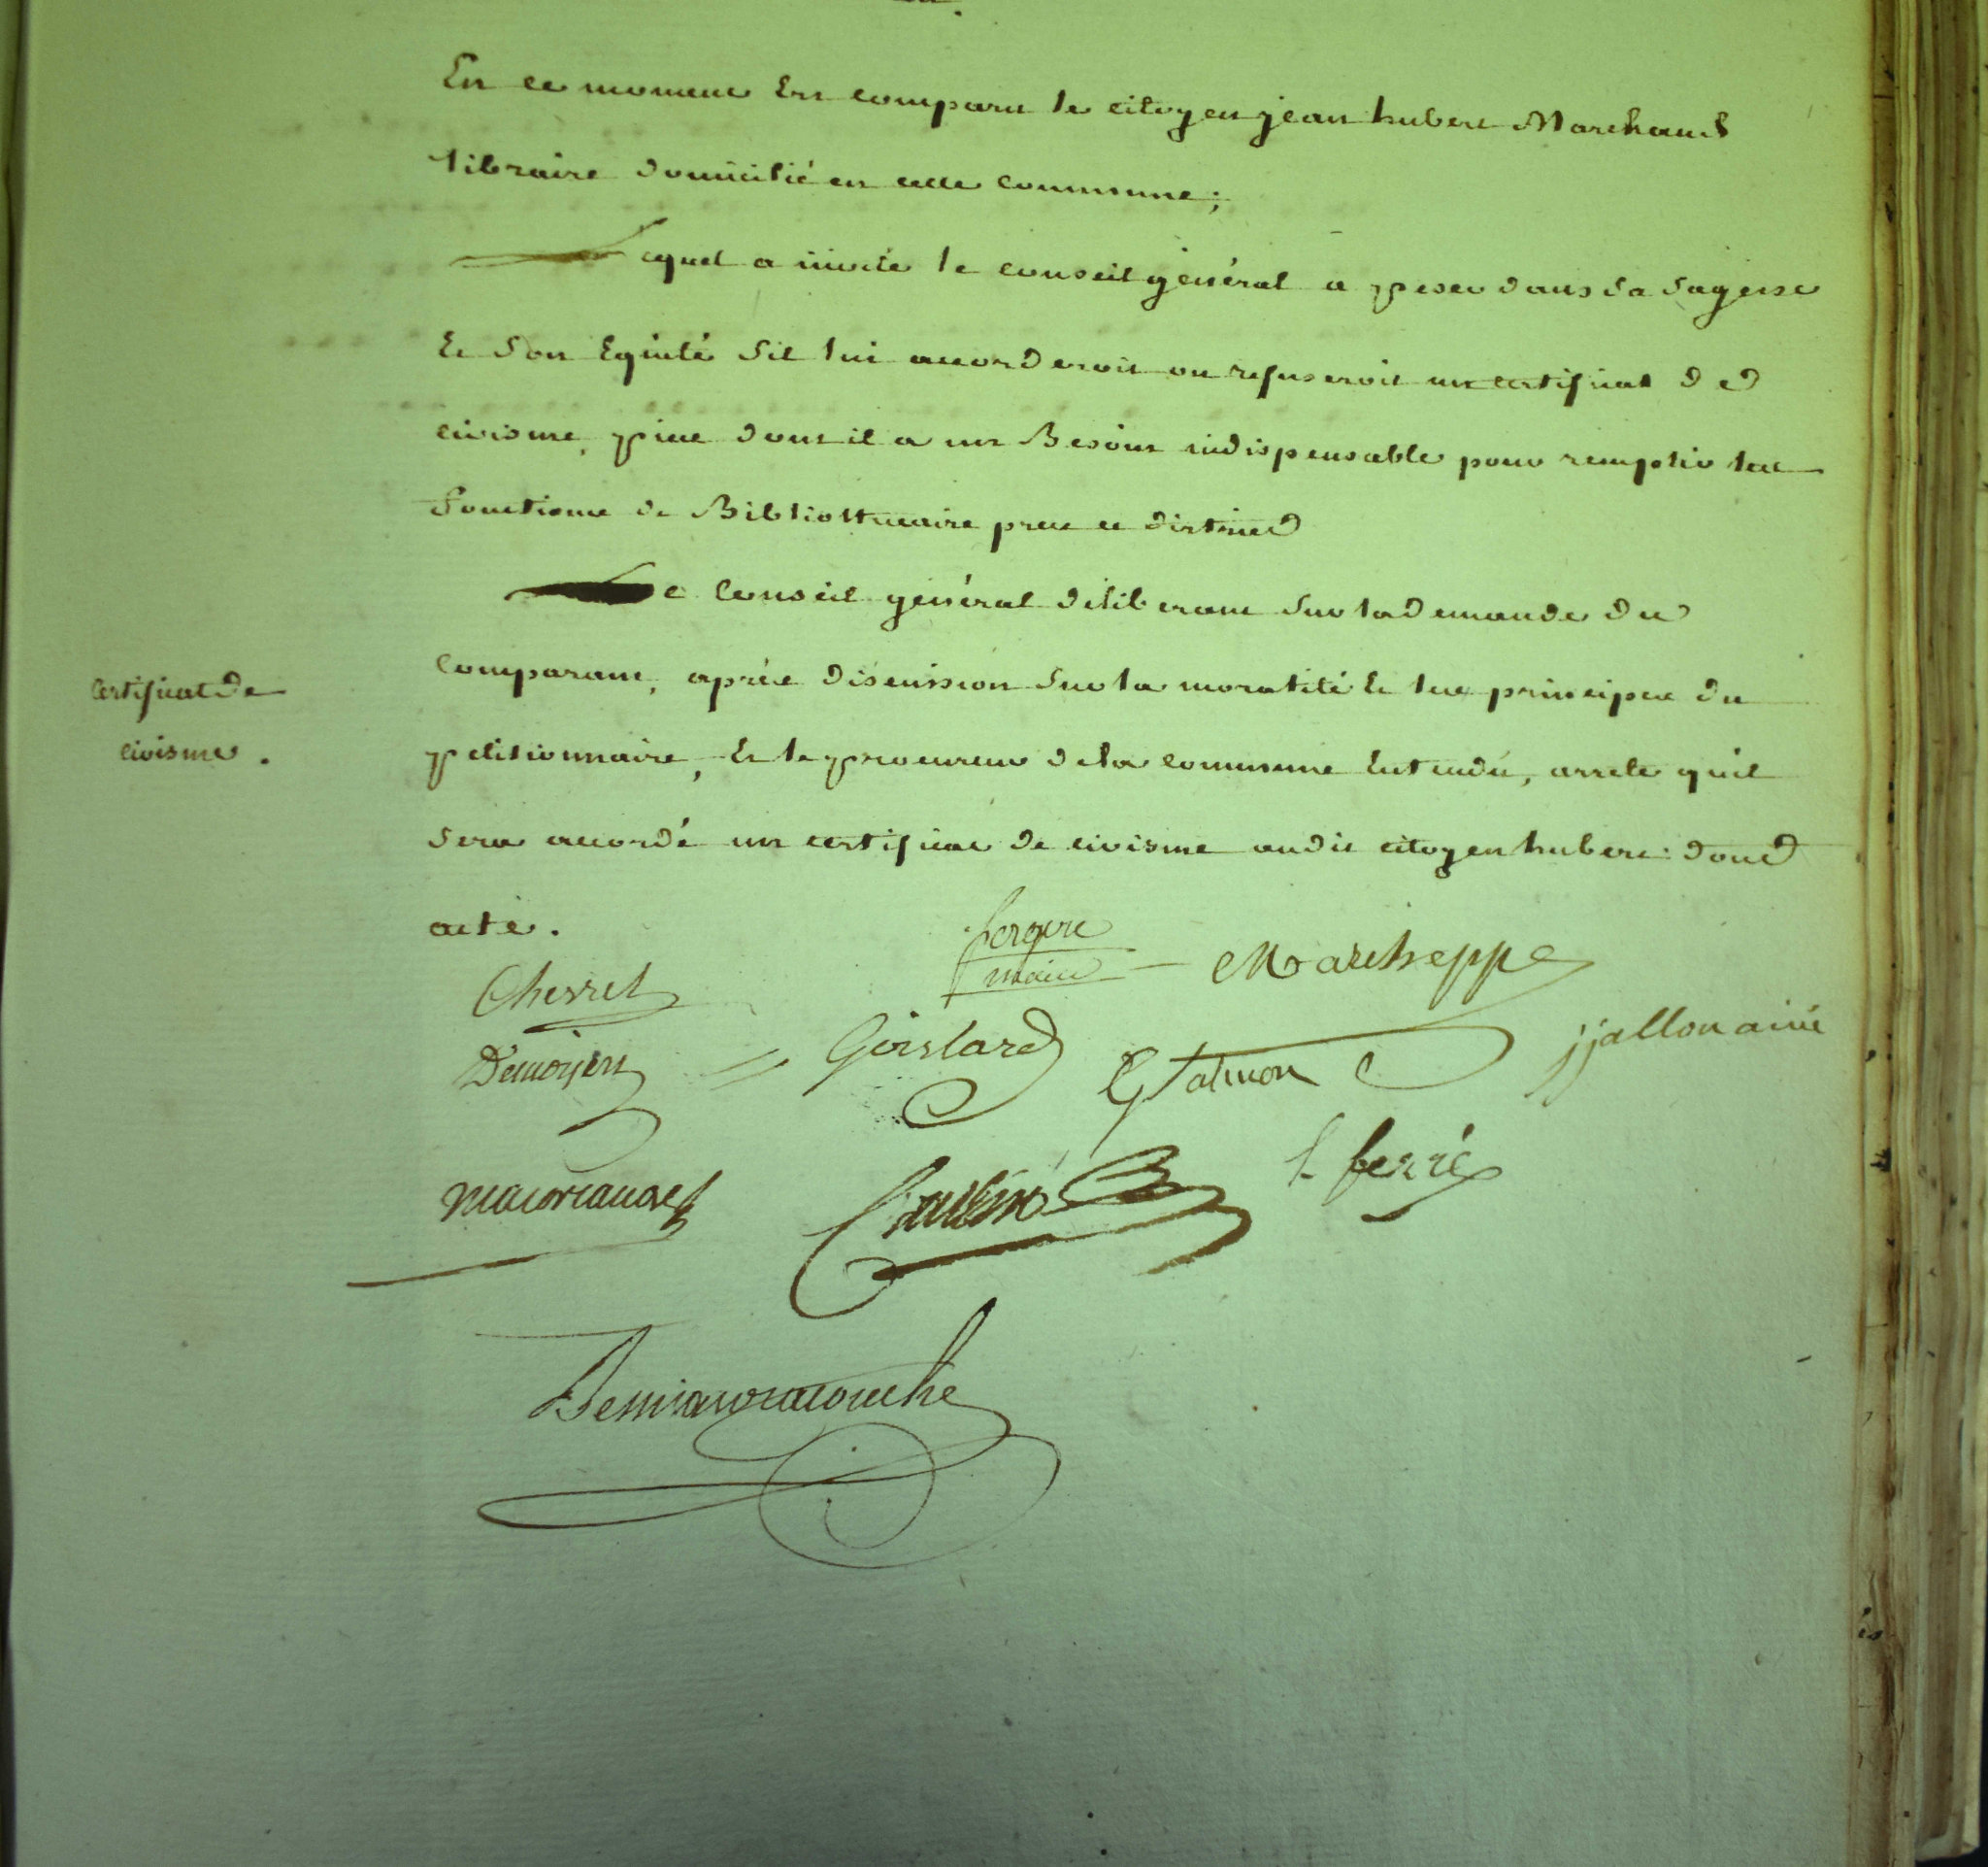 En ce moment Est comparu le citoyen jean hubert Marchand
libraire domicilié en cette commune;
Lequel a invité le conseil général a peser dans sa sagesse
Et son Equité sil lui accorderoit ou refuseroit un certificat de
civisme, piece dont il a un Besoin indispensable pour remplir les
fonctions de Bibliothecaire pres ce district
Le Conseil général déliberant sur la demande du
Comparant, après discussion sur la moralité Et les principes du
Certificat de
civisme.
petitionnaire, Et le procureur dela commune Entendu, arrete quil
sera accordé un certificat de civisme audit citoyen hubert: dont
acte.
maire
Cherrel
Gislard
G Talmon
jjallon ainé
L ferré